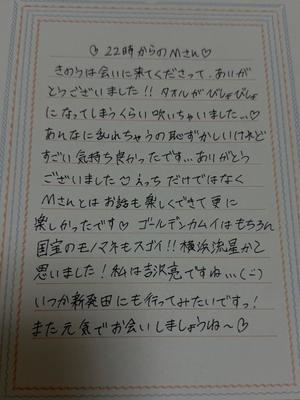 ♡ 22時からのMさん♡
きのうは会いに来てくださって、ありが
とうございました!! タオルがびしょびしょ
になってしまうくらい吹いちゃいました...♡
あんなに乱れちゃうの恥ずかしいけれど
すごい気持ち良かったです...ありがとう
ございました♡えっちだけではなく
Mさんとはお話も楽しくできて更に
楽しかったです♡ ゴールデンカムイはもちろん
国宝のモノマネもスゴイ!! 横浜流星かと
思いました!私は吉沢亮ですね...(ー)
いつか新発田にも行ってみたいですっ!
また元気でお会いしましょうね〜♡